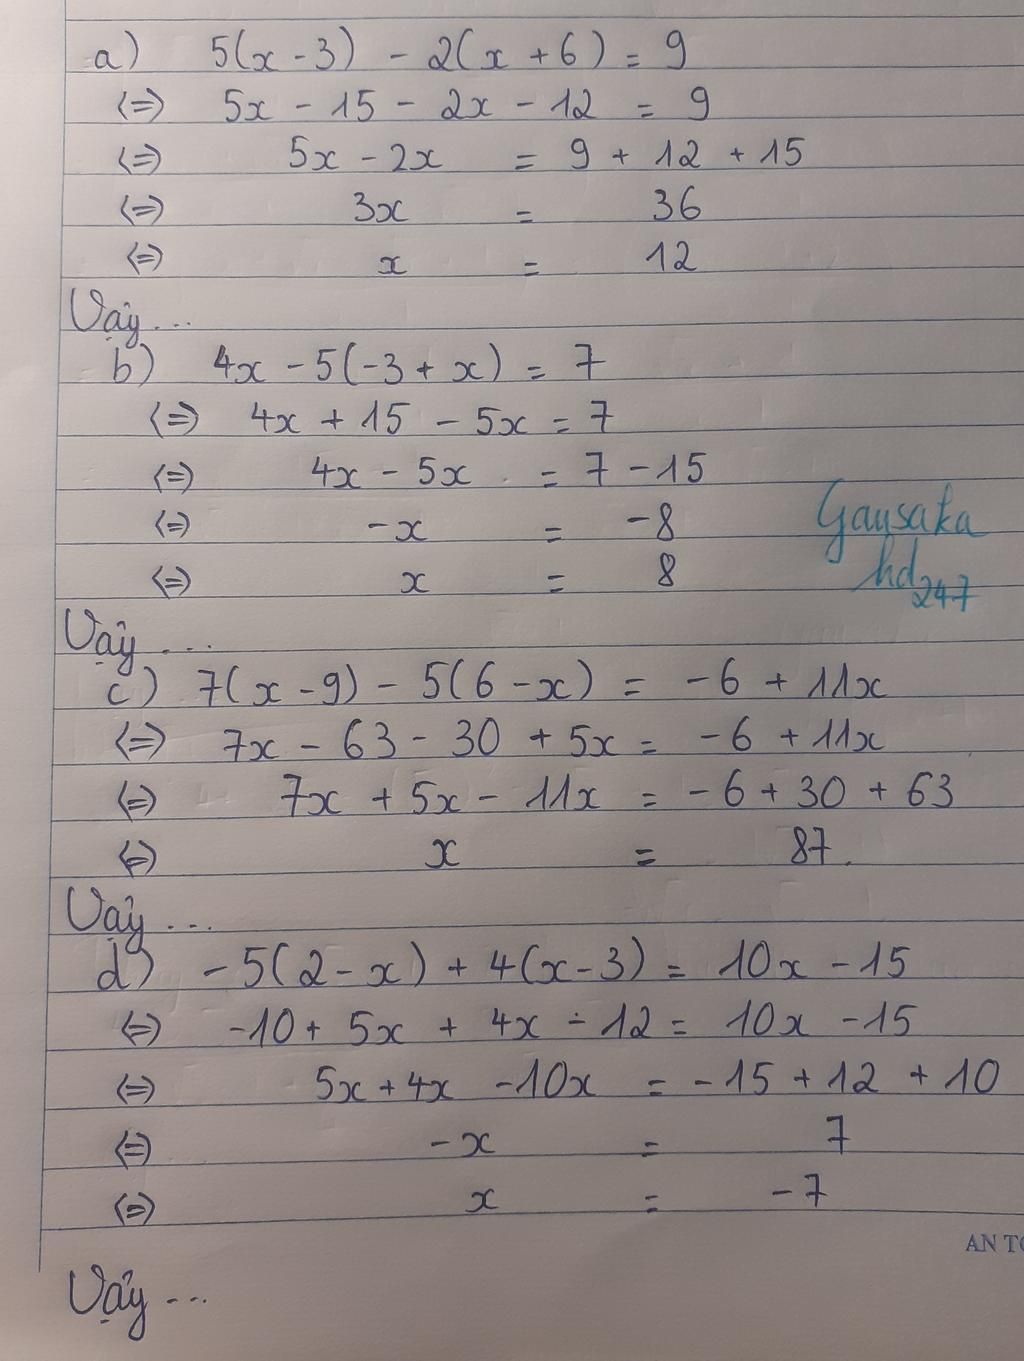 a) 5(x - 3) - 2(x + 6) = 9
<=> 5x - 15 - 2x - 12 = 9
<=> 5x - 2x = 9 + 12 + 15
<=> 3x = 36
<=> x = 12
Vậy ...
b) 4x - 5(-3 + x) = 7
<=> 4x + 15 - 5x = 7
<=> 4x - 5x = 7 - 15
<=> -x = -8
<=> x = 8
Gausaka
hd247
Vậy ...
c) 7(x - 9) - 5(6 - x) = -6 + 11x
<=> 7x - 63 - 30 + 5x = -6 + 11x
<=> 7x + 5x - 11x = -6 + 30 + 63
<=> x = 87.
Vậy ...
d) -5(2 - x) + 4(x - 3) = 10x - 15
<=> -10 + 5x + 4x - 12 = 10x - 15
<=> 5x + 4x - 10x = -15 + 12 + 10
<=> -x = 7
<=> x = -7
AN TO
Vậy ...